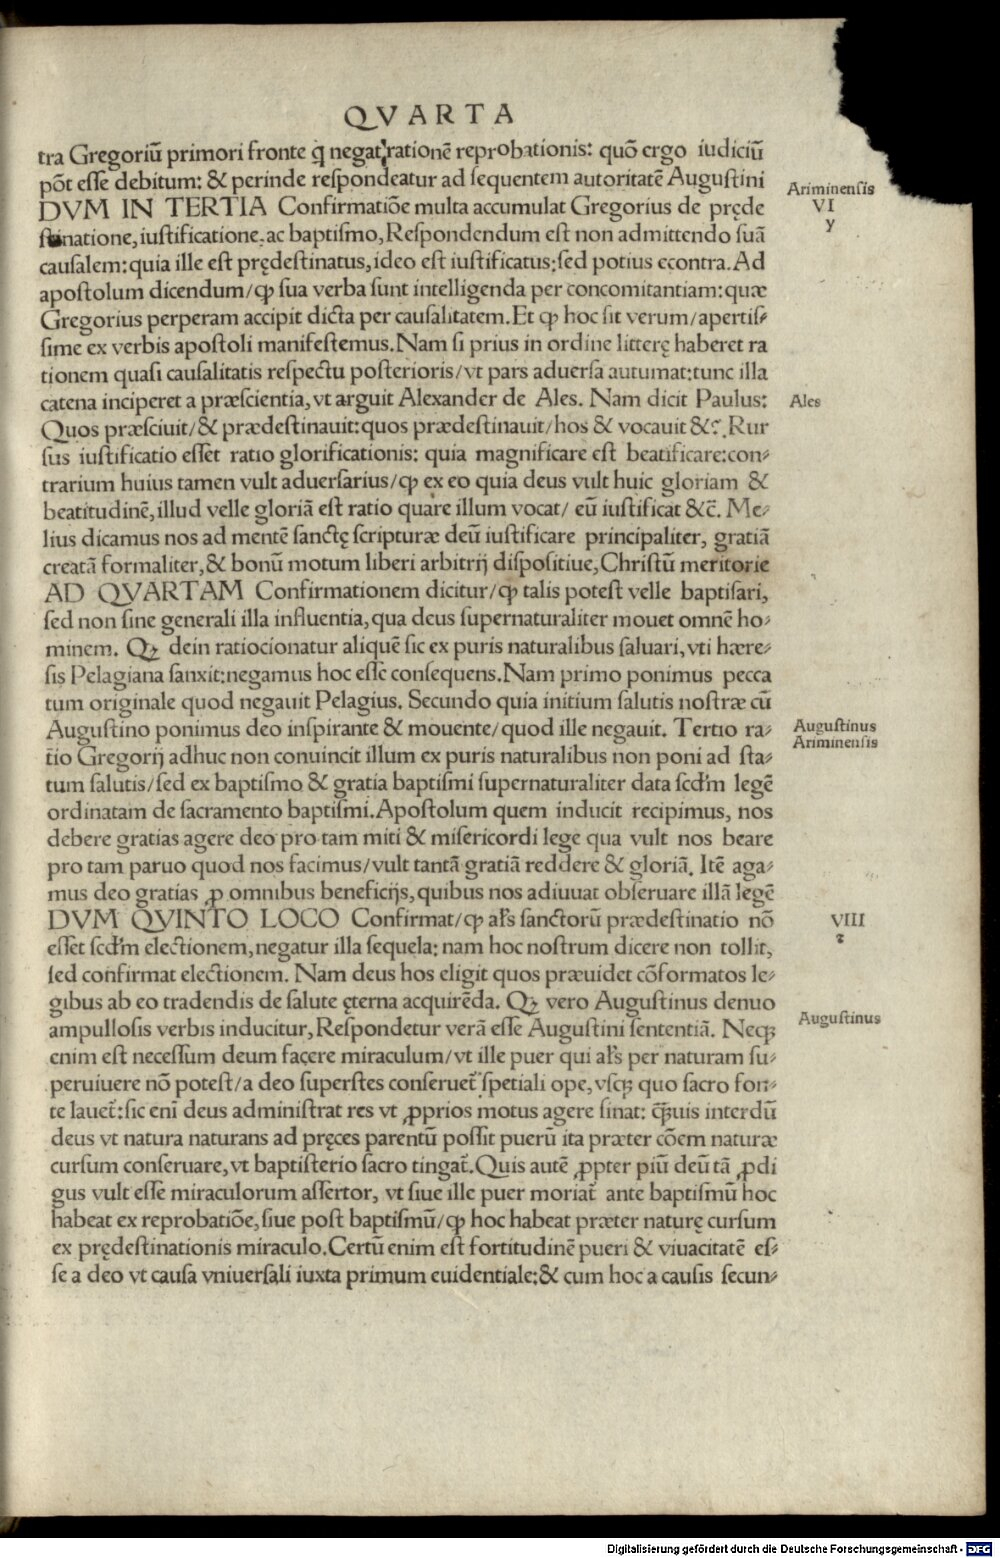 QVARTA
tra Gregoriū primori fronte q̄ negat rationē reprobationis: quō ergo iudiciū
pōt esse debitum: & perinde respondeatur ad sequentem autoritatē Augustini
Ariminensis
DVM IN TERTIA Confirmatiōe multa accumulat Gregorius de pręde
VI
stinatione, iustificatione, ac baptismo, Respondendum est non admittendo suā
y
causalem: quia ille est prędestinatus, ideo est iustificatus: sed potius econtra. Ad
apostolum dicendum/ ꝙ sua verba sunt intelligenda per concomitantiam: quæ
Gregorius perperam accipit dicta per causalitatem. Et ꝙ hoc sit verum/ apertis⸗
sime ex verbis apostoli manifestemus. Nam si prius in ordine litterę haberet ra
tionem quasi causalitatis respectu posterioris/ vt pars aduersa autumat: tunc illa
catena inciperet a præscientia, vt arguit Alexander de Ales. Nam dicit Paulus:
Ales
Quos præsciuit/ & prædestinauit: quos prædestinauit/ hos & vocauit &c̄. Rur
sus iustificatio esset ratio glorificationis: quia magnificare est beatificare: con⸗
trarium huius tamen vult aduersarius/ ꝙ ex eo quia deus vult huic gloriam &
beatitudinē, illud velle gloriā est ratio quare illum vocat/ eū iustificat &c̄. Me⸗
lius dicamus nos ad mentē sanctę scripturæ deū iustificare principaliter, gratiā
creatā formaliter, & bonū motum liberi arbitrij dispositiue, Christū meritorie
AD QVARTAM Confirmationem dicitur/ ꝙ talis potest velle baptisari,
sed non sine generali illa influentia, qua deus supernaturaliter mouet omnē ho⸗
minem. Qꝫ dein ratiocionatur aliquē sic ex puris naturalibus saluari, vti hære⸗
sis Pelagiana sanxit: negamus hoc esse consequens. Nam primo ponimus pecca
tum originale quod negauit Pelagius. Secundo quia initium salutis nostræ cū
Augustino ponimus deo inspirante & mouente/ quod ille negauit. Tertio ra⸗
Augustinus
Ariminensis
tio Gregorij adhuc non conuincit illum ex puris naturalibus non poni ad sta⸗
tum salutis/ sed ex baptismo & gratia baptismi supernaturaliter data scd'm legē
ordinatam de sacramento baptismi. Apostolum quem inducit recipimus, nos
debere gratias agere deo pro tam miti & misericordi lege qua vult nos beare
pro tam paruo quod nos facimus/ vult tantā gratiā reddere & gloriā. Itē aga⸗
mus deo gratias ꝓ omnibus beneficijs, quibus nos adiuuat obseruare illā legē
DVM QVINTO LOCO Confirmat/ ꝙ al's sanctorū prædestinatio nō
VIII
esset scd'm electionem, negatur illa sequela: nam hoc nostrum dicere non tollit,
sed confirmat electionem. Nam deus hos eligit quos præuidet cōformatos le⸗
gibus ab eo tradendis de salute ęterna acquirēda. Qꝫ vero Augustinus denuo
ampullosis verbis inducitur, Respondetur verā esse Augustini sententiā. Necꝫ
Augustinus
enim est necessum deum facere miraculum/ vt ille puer qui al's per naturam su⸗
peruiuere nō potest/ a deo superstes conseruet̄ spetiali ope, vscꝫ quo sacro fon⸗
te lauet̄: sic enī deus administrat res vt ꝓprios motus agere sinat: q̄ꝫuis interdū
deus vt natura naturans ad pręces parentū possit puerū ita præter cōem naturæ
cursum conseruare, vt baptisterio sacro tingat̄. Quis autē ꝓpter piū deū tā ꝓdi
gus vult esse miraculorum assertor, vt siue ille puer moriat̄ ante baptismū hoc
habeat ex reprobatiōe, siue post baptismū/ ꝙ hoc habeat præter naturę cursum
ex prędestinationis miraculo. Certū enim est fortitudinē pueri & viuacitatē es⸗
se a deo vt causa vniuersali iuxta primum euidentiale: & cum hoc a causis secun⸗
Digitalisierung gefördert durch die Deutsche Forschungsgemeinschaft - DFG